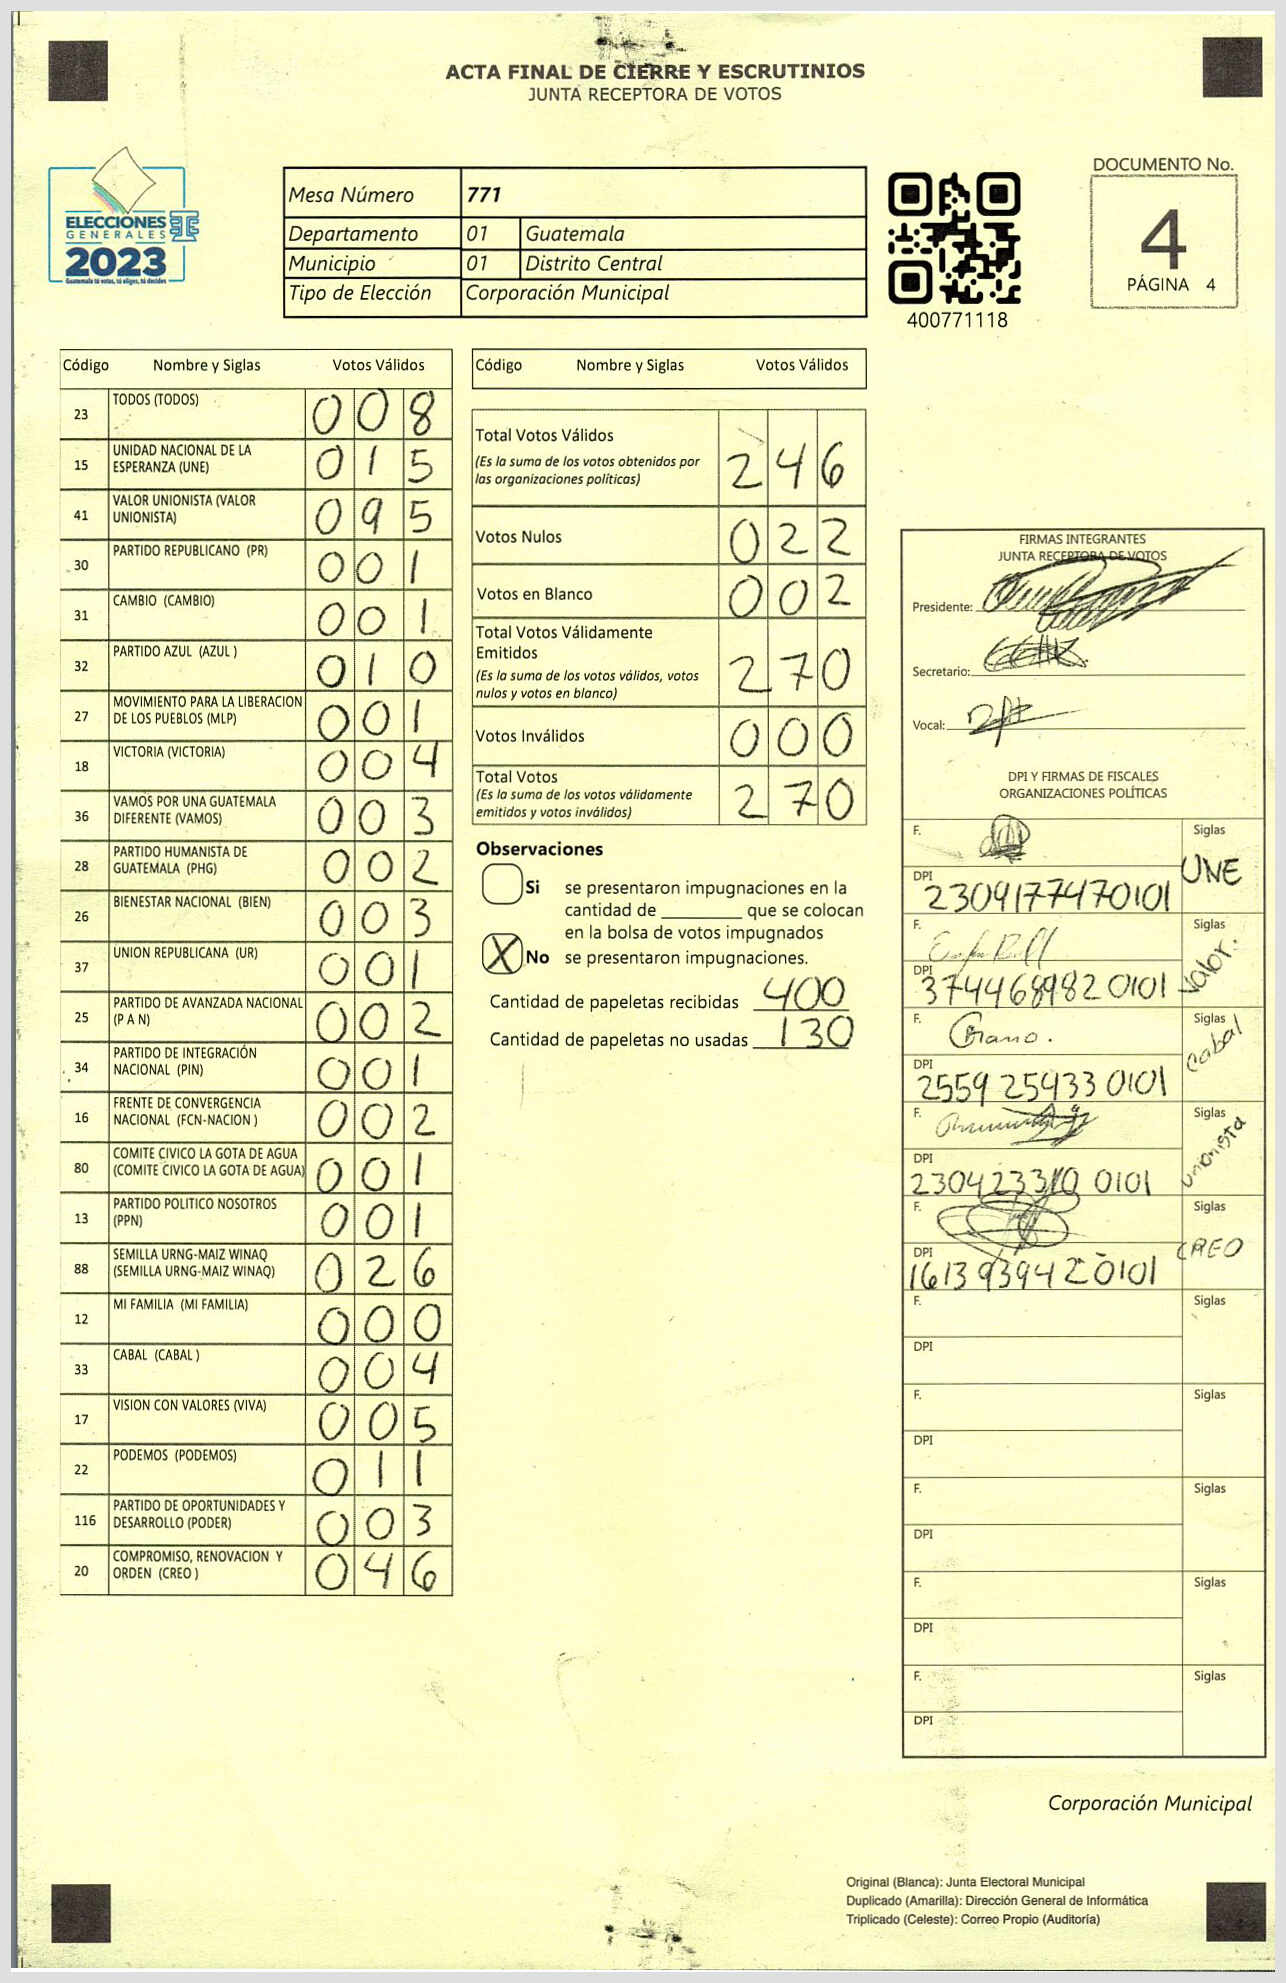 ACTA FINAL DE CIERRE Y ESCRUTINIOS
JUNTA RECEPTORA DE VOTOS
ELECCIONES
GENERALES
2023
Guatemala tú votas, tú eliges, tú decides
Mesa Número 771
Departamento 01 Guatemala
Municipio 01 Distrito Central
Tipo de Elección Corporación Municipal
400771118
DOCUMENTO No.
4
PÁGINA 4
Código Nombre y Siglas Votos Válidos
23 TODOS (TODOS) 008
15 UNIDAD NACIONAL DE LA ESPERANZA (UNE) 015
41 VALOR UNIONISTA (VALOR UNIONISTA) 095
30 PARTIDO REPUBLICANO (PR) 001
31 CAMBIO (CAMBIO) 001
32 PARTIDO AZUL (AZUL ) 010
27 MOVIMIENTO PARA LA LIBERACION DE LOS PUEBLOS (MLP) 001
18 VICTORIA (VICTORIA) 004
36 VAMOS POR UNA GUATEMALA DIFERENTE (VAMOS) 003
28 PARTIDO HUMANISTA DE GUATEMALA (PHG) 002
26 BIENESTAR NACIONAL (BIEN) 003
37 UNION REPUBLICANA (UR) 001
25 PARTIDO DE AVANZADA NACIONAL (P A N) 002
34 PARTIDO DE INTEGRACIÓN NACIONAL (PIN) 001
16 FRENTE DE CONVERGENCIA NACIONAL (FCN-NACION ) 002
80 COMITE CIVICO LA GOTA DE AGUA (COMITE CIVICO LA GOTA DE AGUA) 001
13 PARTIDO POLITICO NOSOTROS (PPN) 001
88 SEMILLA URNG-MAIZ WINAQ (SEMILLA URNG-MAIZ WINAQ) 026
12 MI FAMILIA (MI FAMILIA) 000
33 CABAL (CABAL ) 004
17 VISION CON VALORES (VIVA) 005
22 PODEMOS (PODEMOS) 011
116 PARTIDO DE OPORTUNIDADES Y DESARROLLO (PODER) 003
20 COMPROMISO, RENOVACION Y ORDEN (CREO ) 046
Código Nombre y Siglas Votos Válidos
Total Votos Válidos 246
(Es la suma de los votos obtenidos por
las organizaciones políticas)
Votos Nulos 022
Votos en Blanco 002
Total Votos Válidamente
Emitidos 270
(Es la suma de los votos válidos, votos
nulos y votos en blanco)
Votos Inválidos 000
Total Votos 270
(Es la suma de los votos válidamente
emitidos y votos inválidos)
Observaciones
Si se presentaron impugnaciones en la
cantidad de ________ que se colocan
en la bolsa de votos impugnados
X No se presentaron impugnaciones.
Cantidad de papeletas recibidas 400
Cantidad de papeletas no usadas 130
FIRMAS INTEGRANTES
JUNTA RECEPTORA DE VOTOS
Presidente:
Secretario:
Vocal:
DPI Y FIRMAS DE FISCALES
ORGANIZACIONES POLÍTICAS
F. Siglas
UNE
DPI 2309177470101
F. Siglas
Valor.
DPI 3744689820101
F. Siglas
cabal
DPI 2559 25933 0101
F. Siglas
unionista
DPI 0101
F. Siglas
CREO
DPI 1613 93942 0101
F. Siglas
DPI
F. Siglas
DPI
F. Siglas
DPI
F. Siglas
DPI
F. Siglas
DPI
Corporación Municipal
Original (Blanca): Junta Electoral Municipal
Duplicado (Amarilla): Dirección General de Informática
Triplicado (Celeste): Correo Propio (Auditoría)